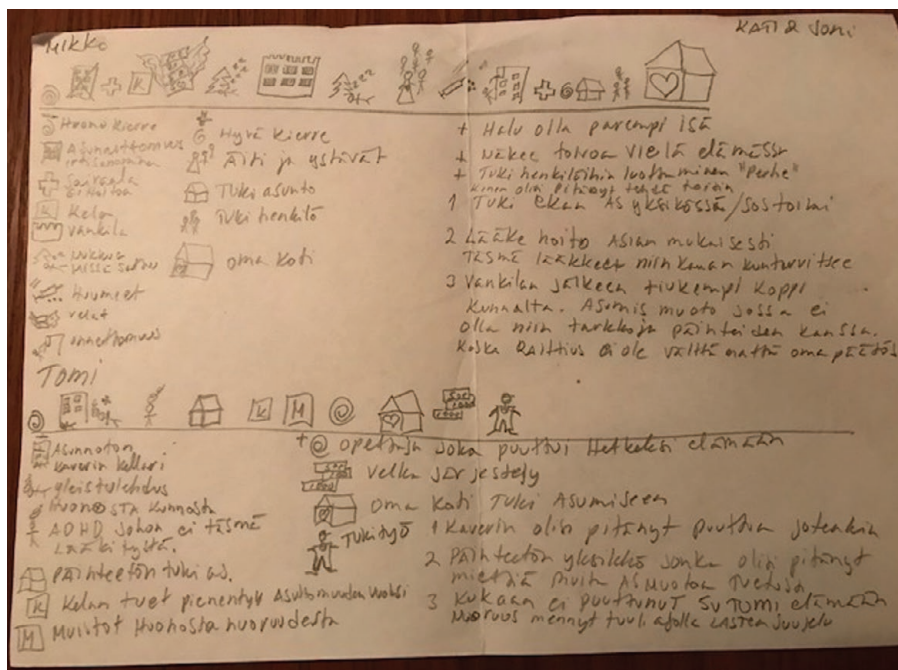 Mikko
KATI & Joni
Huono kierre
Asunnottomuus
Sairaala
Kelan
Vankila
Nukkuu
missä sattuu
Huumeet
velat
onnettomuus
Hyvä kierre
Äiti ja ystävät
Tuki asunto
Tuki henkilö
oma koti
+ Halu olla parempi isä
+ Näkee toivoa vielä elämässä
+ Tuki henkilöihin luottaminen "Perhe"
olisi pitänyt tehdä toisin
1 Tuki ekaan AS yksikössä/sostoimi
2 Lääke hoito ASian mukaisesti
Täsmä lääkkeet niin kauan kun tarvitsee
3 Vankilan jälkeen tiukempi koppi
kunnalta. Asumis muoto jossa ei
olla niin tarkkoja päihteiden kanssa.
Koska RAittius ei ole välttämättä oma päätös
Tomi
K M
Asunnoton
kaverin kellari
yleistulehdus
Huonosta kunnosta
ADHD Johon ei täsmä
Lääkitystä.
Päihteetön tuki as.
K Kelan tuet pienentyy Asuttomuuden vuoksi
M Muistot Huonosta nuoruudesta
+ opettaja joka puuttui Hetkeksi elämään
velka järjestely
oma koti Tuki Asumiseen
Tukityö
1 Kaverin olisi pitänyt puuttua jotenkin
2 Päihteetön yksikkö jonka olisi pitänyt
miettiä muita AS muotoa
3 Kukaan ei puuttunut Tomi elämään
Nuoruus mennyt tuuli ajolla LASTEN suojelu